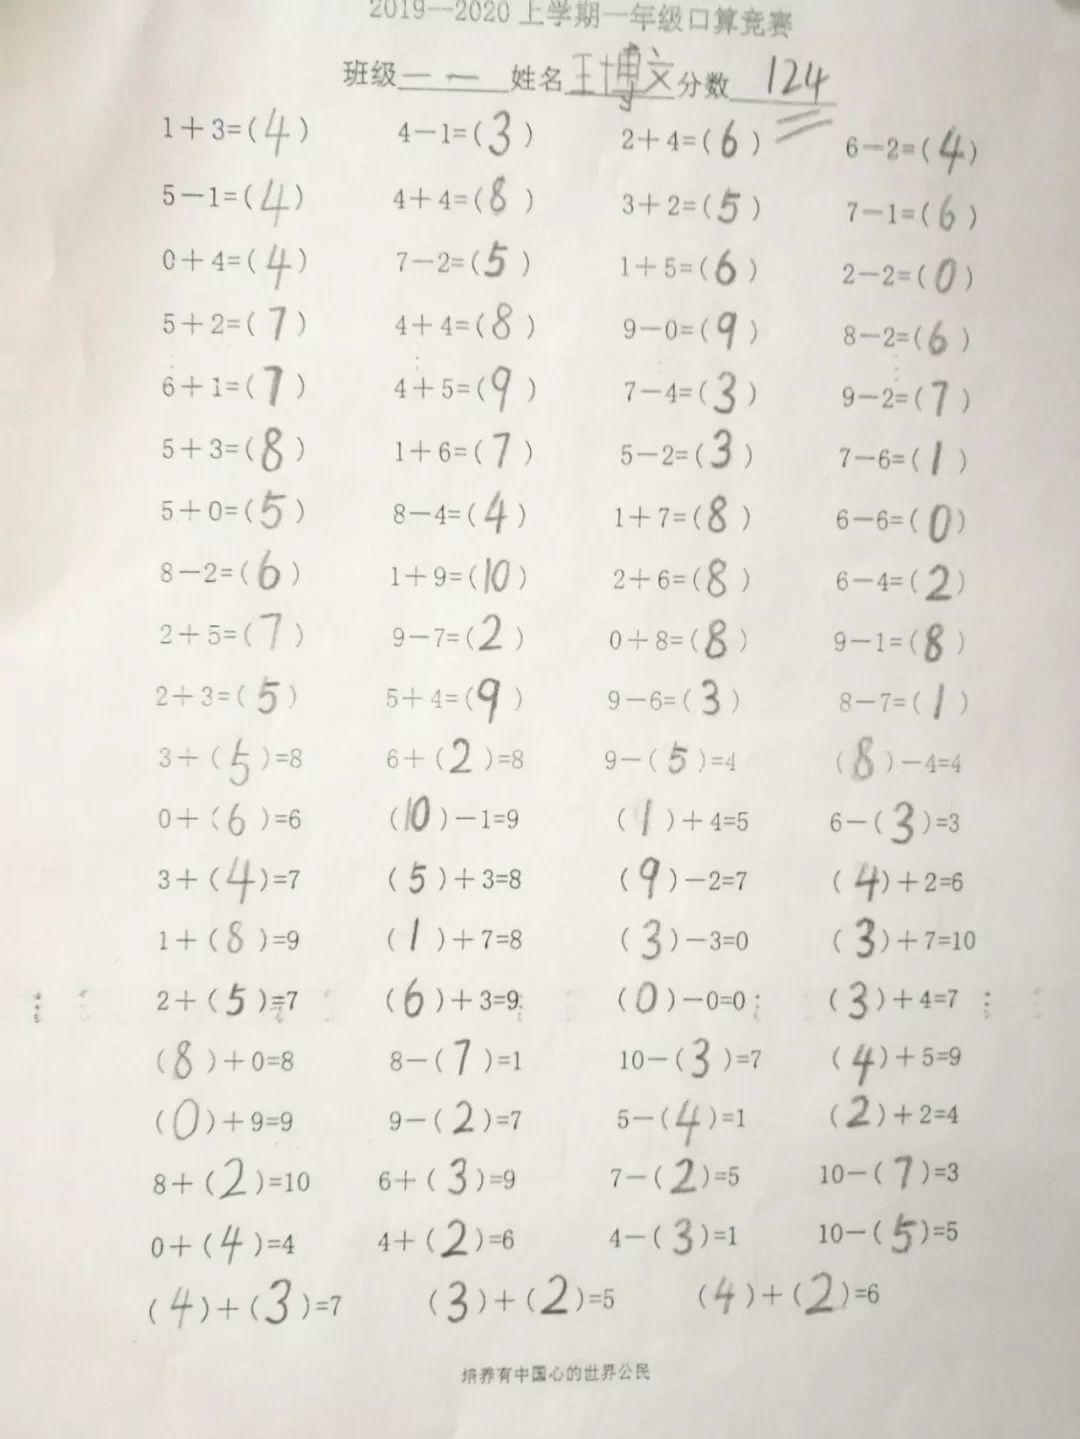 2019--2020上学期一年级口算竞赛
班级 一 一 姓名 王博文 分数 124
1+3=(4) 4-1=(3) 2+4=(6) 6-2=(4)
5-1=(4) 4+4=(8) 3+2=(5) 7-1=(6)
0+4=(4) 7-2=(5) 1+5=(6) 2-2=(0)
5+2=(7) 4+4=(8) 9-0=(9) 8-2=(6)
6+1=(7) 4+5=(9) 7-4=(3) 9-2=(7)
5+3=(8) 1+6=(7) 5-2=(3) 7-6=(1)
5+0=(5) 8-4=(4) 1+7=(8) 6-6=(0)
8-2=(6) 1+9=(10) 2+6=(8) 6-4=(2)
2+5=(7) 9-7=(2) 0+8=(8) 9-1=(8)
2+3=(5) 5+4=(9) 9-6=(3) 8-7=(1)
3+(5)=8 6+(2)=8 9-(5)=4 (8)-4=4
0+(6)=6 (10)-1=9 (1)+4=5 6-(3)=3
3+(4)=7 (5)+3=8 (9)-2=7 (4)+2=6
1+(8)=9 (1)+7=8 (3)-3=0 (3)+7=10
2+(5)=7 (6)+3=9 (0)-0=0 (3)+4=7
(8)+0=8 8-(7)=1 10-(3)=7 (4)+5=9
(0)+9=9 9-(2)=7 5-(4)=1 (2)+2=4
8+(2)=10 6+(3)=9 7-(2)=5 10-(7)=3
0+(4)=4 4+(2)=6 4-(3)=1 10-(5)=5
(4)+(3)=7 (3)+(2)=5 (4)+(2)=6
培养有中国心的世界公民